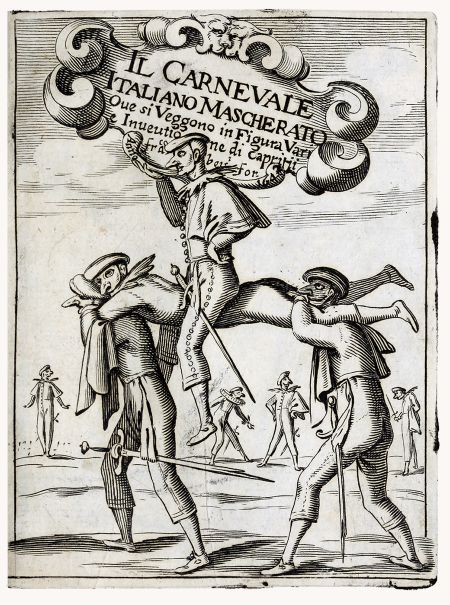 IL CARNEVALE
ITALIANO MASCHERATO
Oue si Veggono in Figura Varie
e Inuentione di Capritii